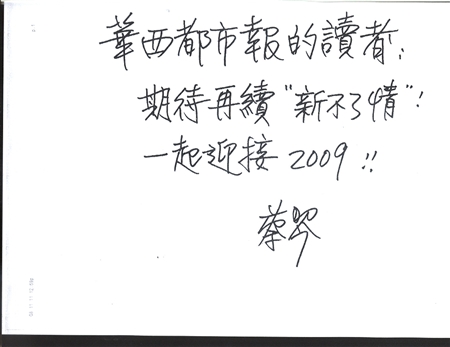 華西都市報的讀者:
期待再續"新不了情"!
一起迎接 2009 !!
蔡琴